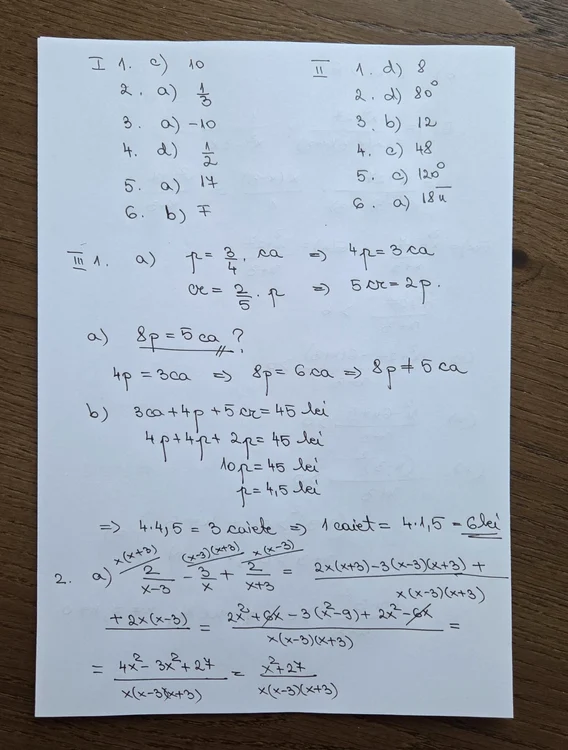 I 1. c) 10
2. a) 1/3
3. a) -10
4. d) 1/2
5. a) 17
6. b) F
II 1. d) 8
2. d) 80°
3. b) 12
4. c) 48
5. c) 120°
6. a) 18π
III 1. a) p = 3/4 · ca ⇒ 4p = 3ca
cr = 2/5 · p ⇒ 5cr = 2p.
a) 8p = 5ca ?
4p = 3ca ⇒ 8p = 6ca ⇒ 8p ≠ 5ca
b) 3ca + 4p + 5cr = 45 lei
4p + 4p + 2p = 45 lei
10p = 45 lei
p = 4,5 lei
⇒ 4·4,5 = 3 caiete ⇒ 1 caiet = 4·1,5 = 6 lei
x(x+3) (x-3)(x+3) x(x-3)
2. a) 2/(x-3) - 3/x + 2/(x+3) = (2x(x+3) - 3(x-3)(x+3) +)/(x(x-3)(x+3))
+ 2x(x-3) = (2x² + 6x - 3(x²-9) + 2x² - 6x)/(x(x-3)(x+3)) =
= (4x² - 3x² + 27)/(x(x-3)(x+3)) = (x² + 27)/(x(x-3)(x+3))